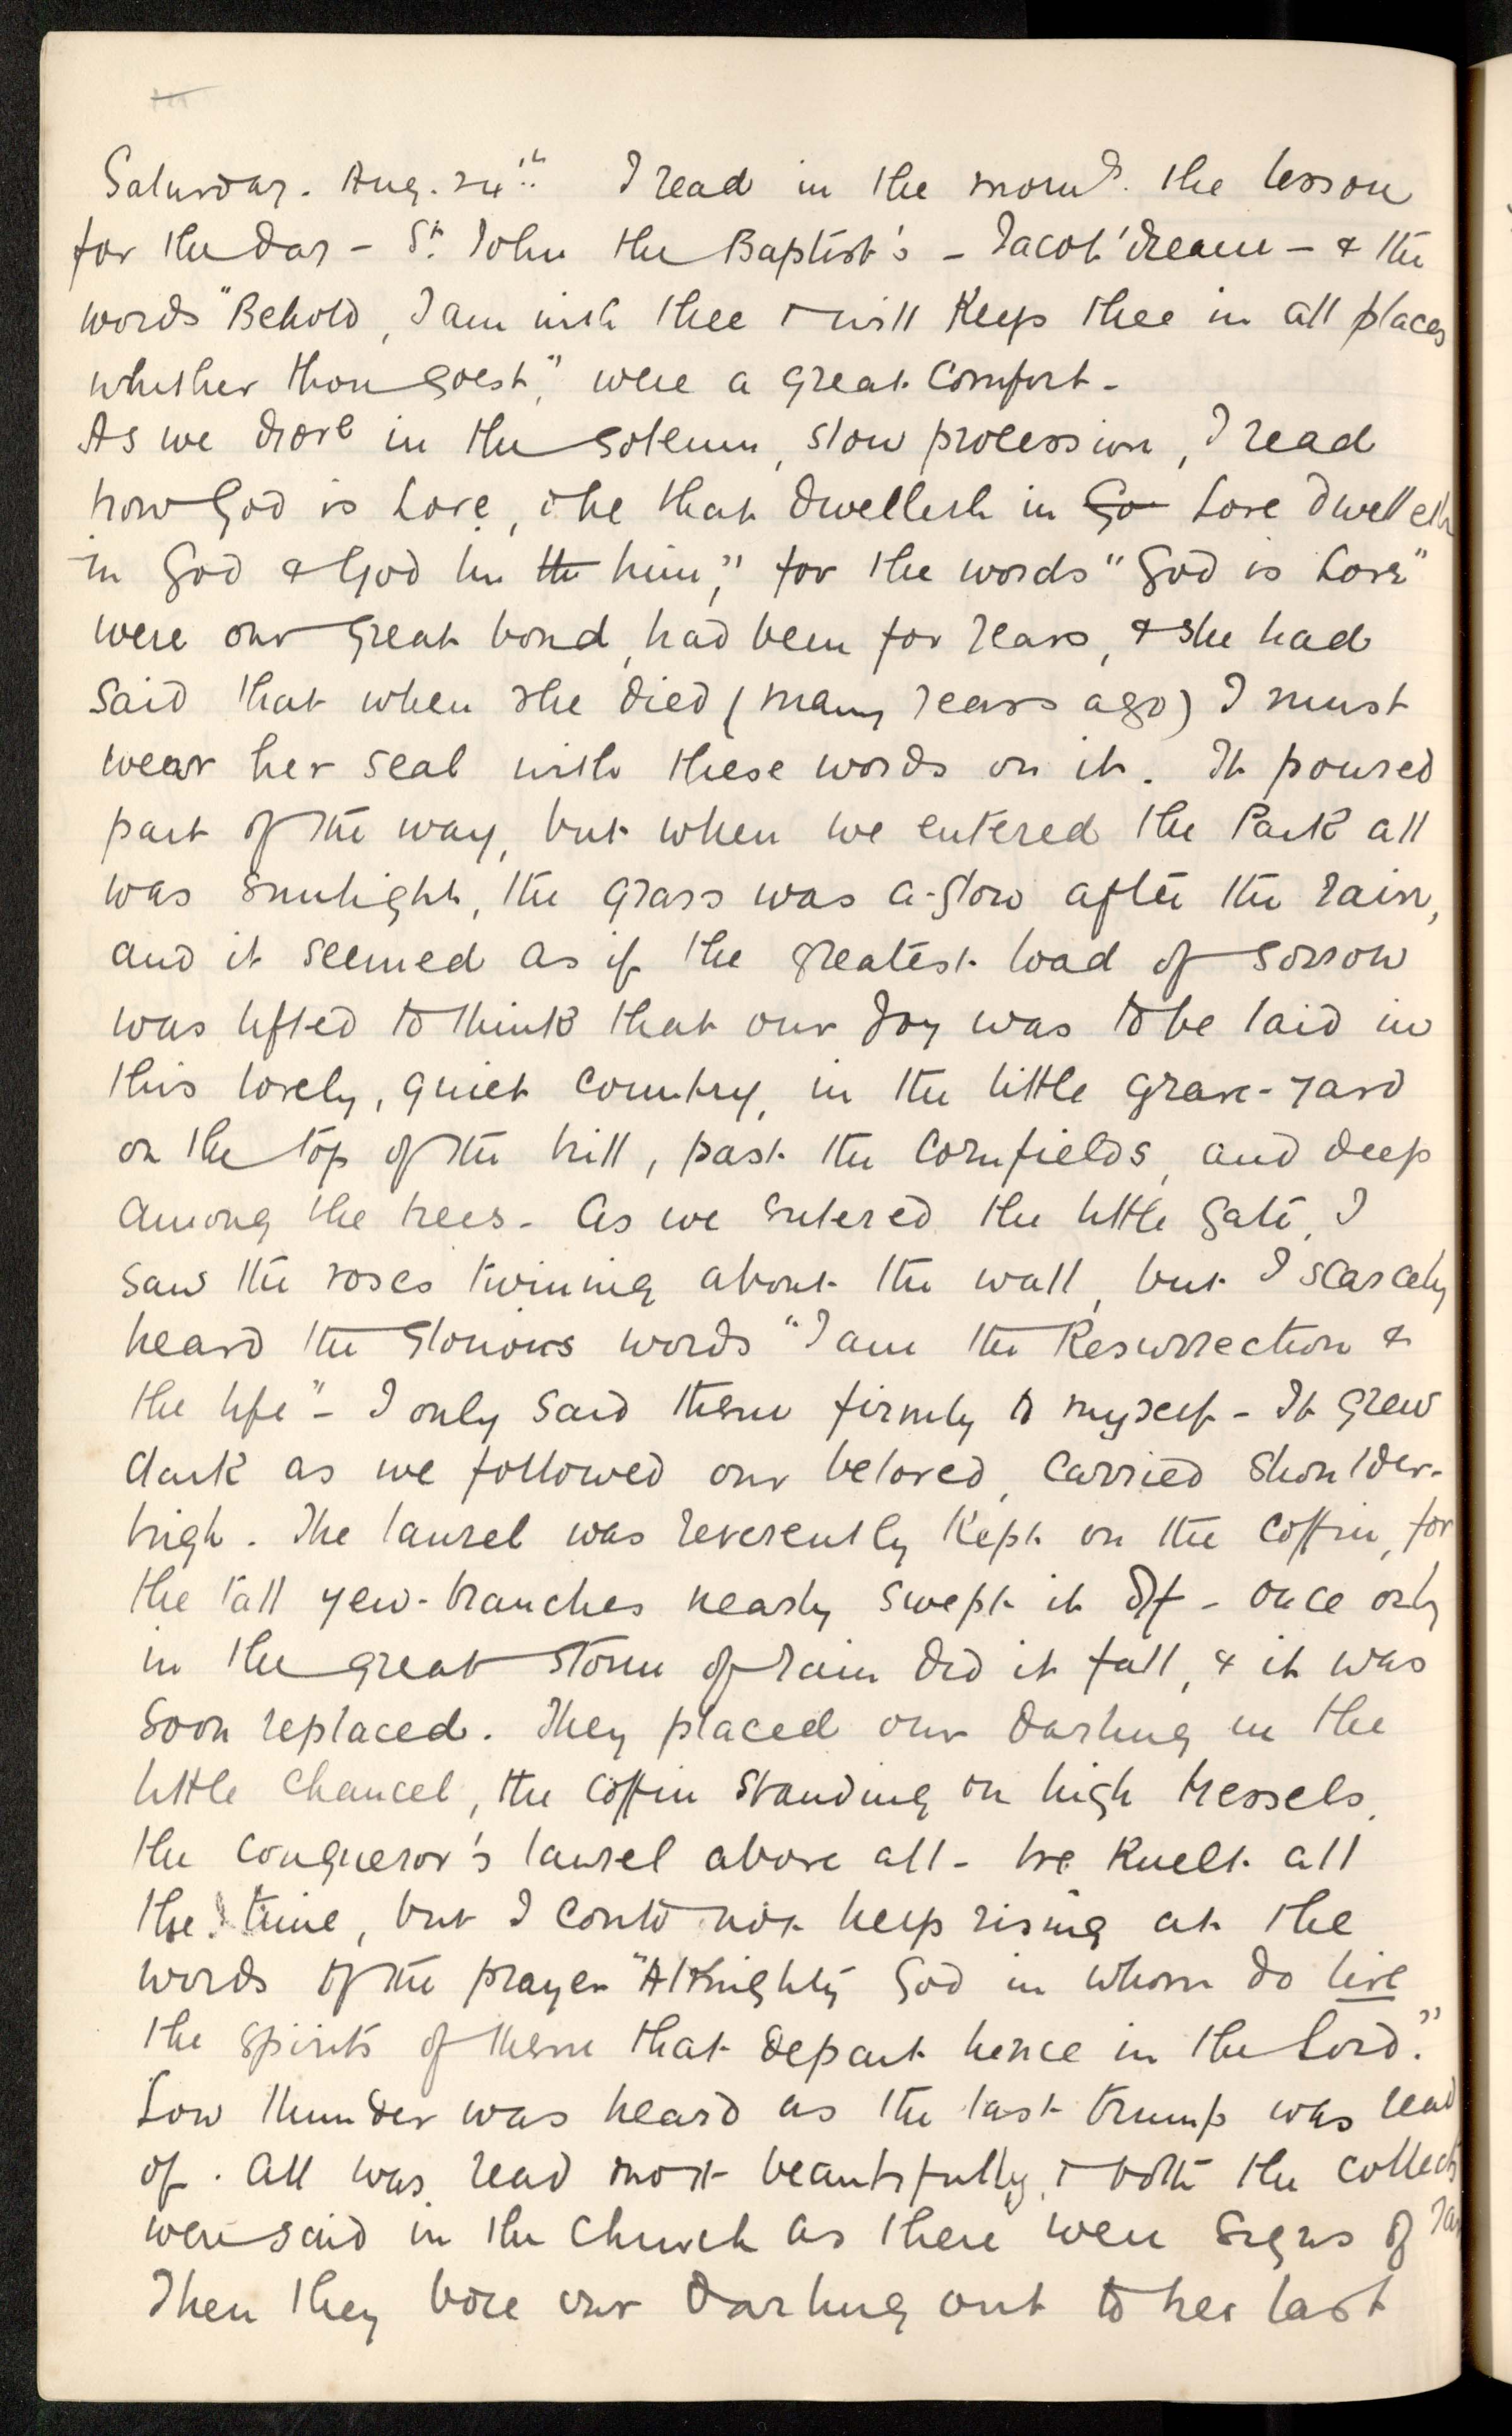 Saturday. Aug. 24th. I read in the morng. the lesson
for the day - St. John the Baptist's - Jacob' dream - & the
words "Behold, I am with thee & will keep thee in all places
whither thou goest," were a great comfort -
As we drove in the solemn, slow procession, I read
how God is Love, & he that dwelleth in Go Love dwelleth
in God & God in th him," for the words "God is Love"
were our great bond, had been for years, & she had
said that when she died (many years ago) I must
wear her seal with these words on it. It poured
part of the way, but when we entered the Park all
was sunlight, the grass was a-glow after the rain,
and it seemed as if the greatest load of sorrow
was lifted to think that our Joy was to be laid in
this lovely, quiet country, in the little grave-yard
on the top of the hill, past the cornfields, and deep
among the trees - As we entered the little gate, I
saw the roses twining about the wall, but I scarcely
heard the glorious words "I am the Resurrection &
the life" - I only said them firmly to myself - It grew
dark as we followed our beloved, carried shoulder-
high. The laurel was reverently kept on the coffin, for
the tall yew-branches nearly swept it off - once only
in the great storm of rain did it fall, & it was
soon replaced. They placed our darling in the
little chancel, the coffin standing on high tressels,
the conqueror's laurel above all - We knelt all
the time, but I could not help rising at the
words of the prayer "Almighty God in whom do live
the spirits of them that depart hence in the Lord."
Low thunder was heard as the last trump was read
of. All was read most beautifully, & both the collects
were said in the church as there were signs of
Then they bore our darling out to her last